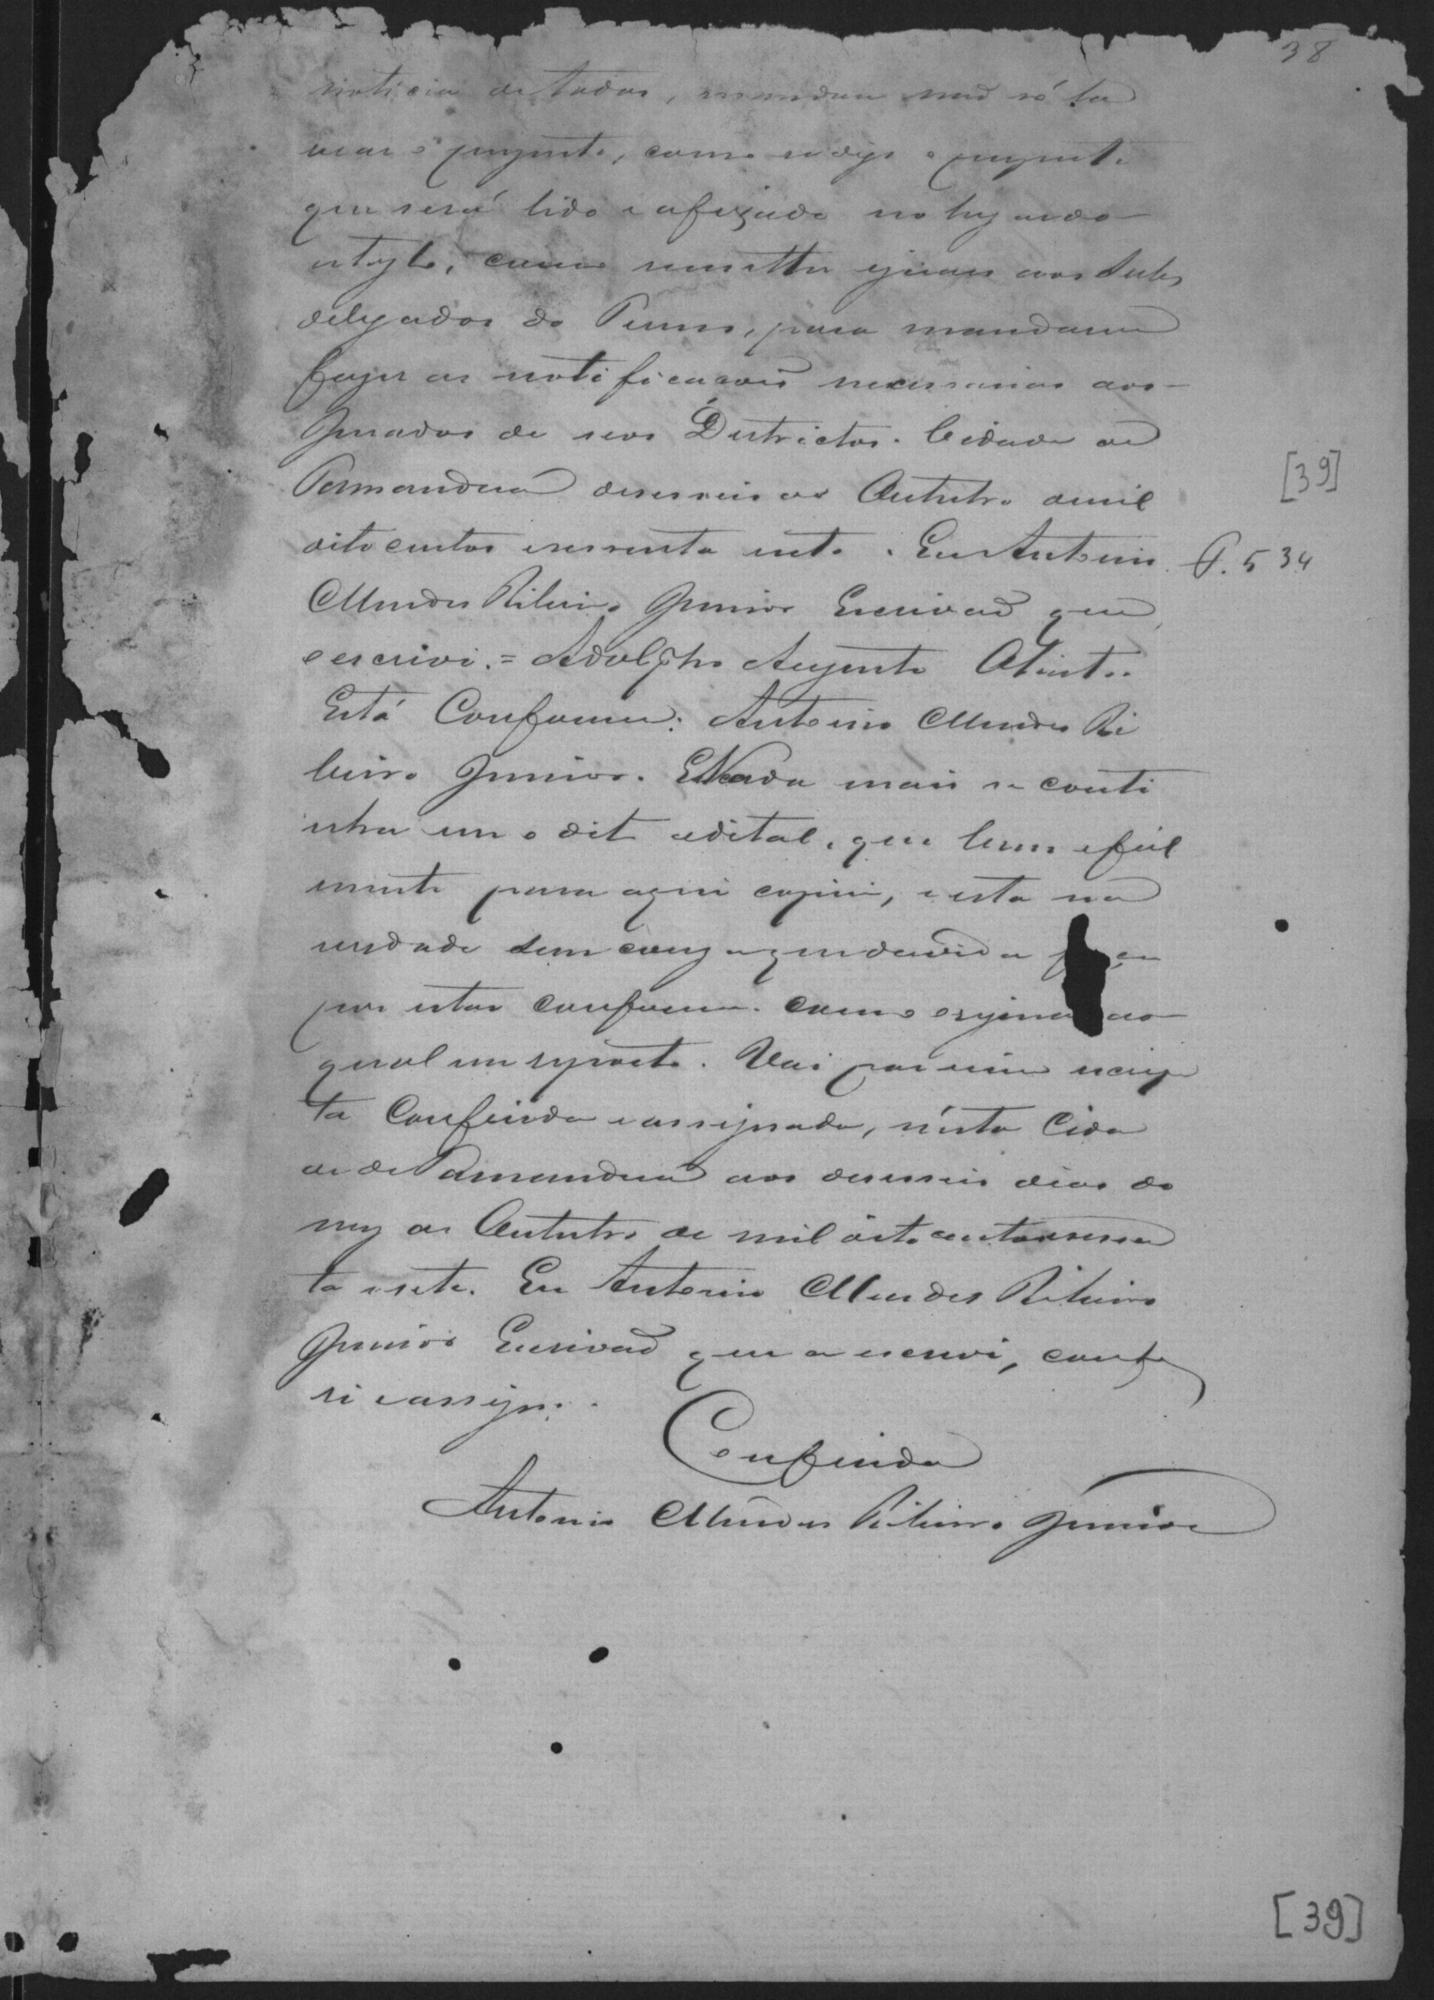 38
noticia de todos, mandou não só la
vrar o prezente, como
que será lido e afixado no lugar do
estylo, como remetter iguaes aos Sub
delegados do Termo, para mandarem
fazer as notificações necessarias aos
Jurados de seos Districtos. Cidade de
Tamanduá deseseis de Outubro de mil
oito centos e sessenta e sete. Eu Antonio
Mendes Ribeiro Junior Escrivão que
o escrivi. = Adolpho Augusto
Está Conforme: Antonio Mendes Ri
beiro Junior. E Nada mais se conti
nha em o dito edital, que bem e fiel
mente para aqui copiei, e esta na
verdade sem couza que duvida faça
por estar conforme com o original ao
qual me reporto. Vai por mim escrip
ta Conferida e assignada, nésta Cida
de de Tamanduá aos deseseis dias do
mez de Outubro de mil oito centos sessen
ta e sete. Eu Antonio Mendes Ribeiro
Junior Escrivão que a escrevi, confe
ri e assigno.
Conferida
Antonio Mendes Ribeiro Junior
[39]
P. 534
[39]